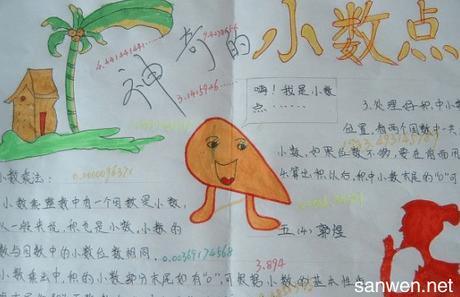 神奇的小数点
6.141441441……
9.4278454
3.1415926……
嗨！我是小数
点……
3.处理好积中小数
位置，看两个因数中一共
小数，如果位数不够，要在前面用
出乘出积以后，积中小数末尾的"0"可
小数乘法：
0.000009637
小数乘整数中有一个因数是小数，
从一般来说，积也是小数，小数的
数与因数中的小数位数相同。
0.00369174568
五(4) 郭煜
3.894
小数乘出中，积的小数部分末尾如有"0"，可根据小数的基本性质
sanwen.net